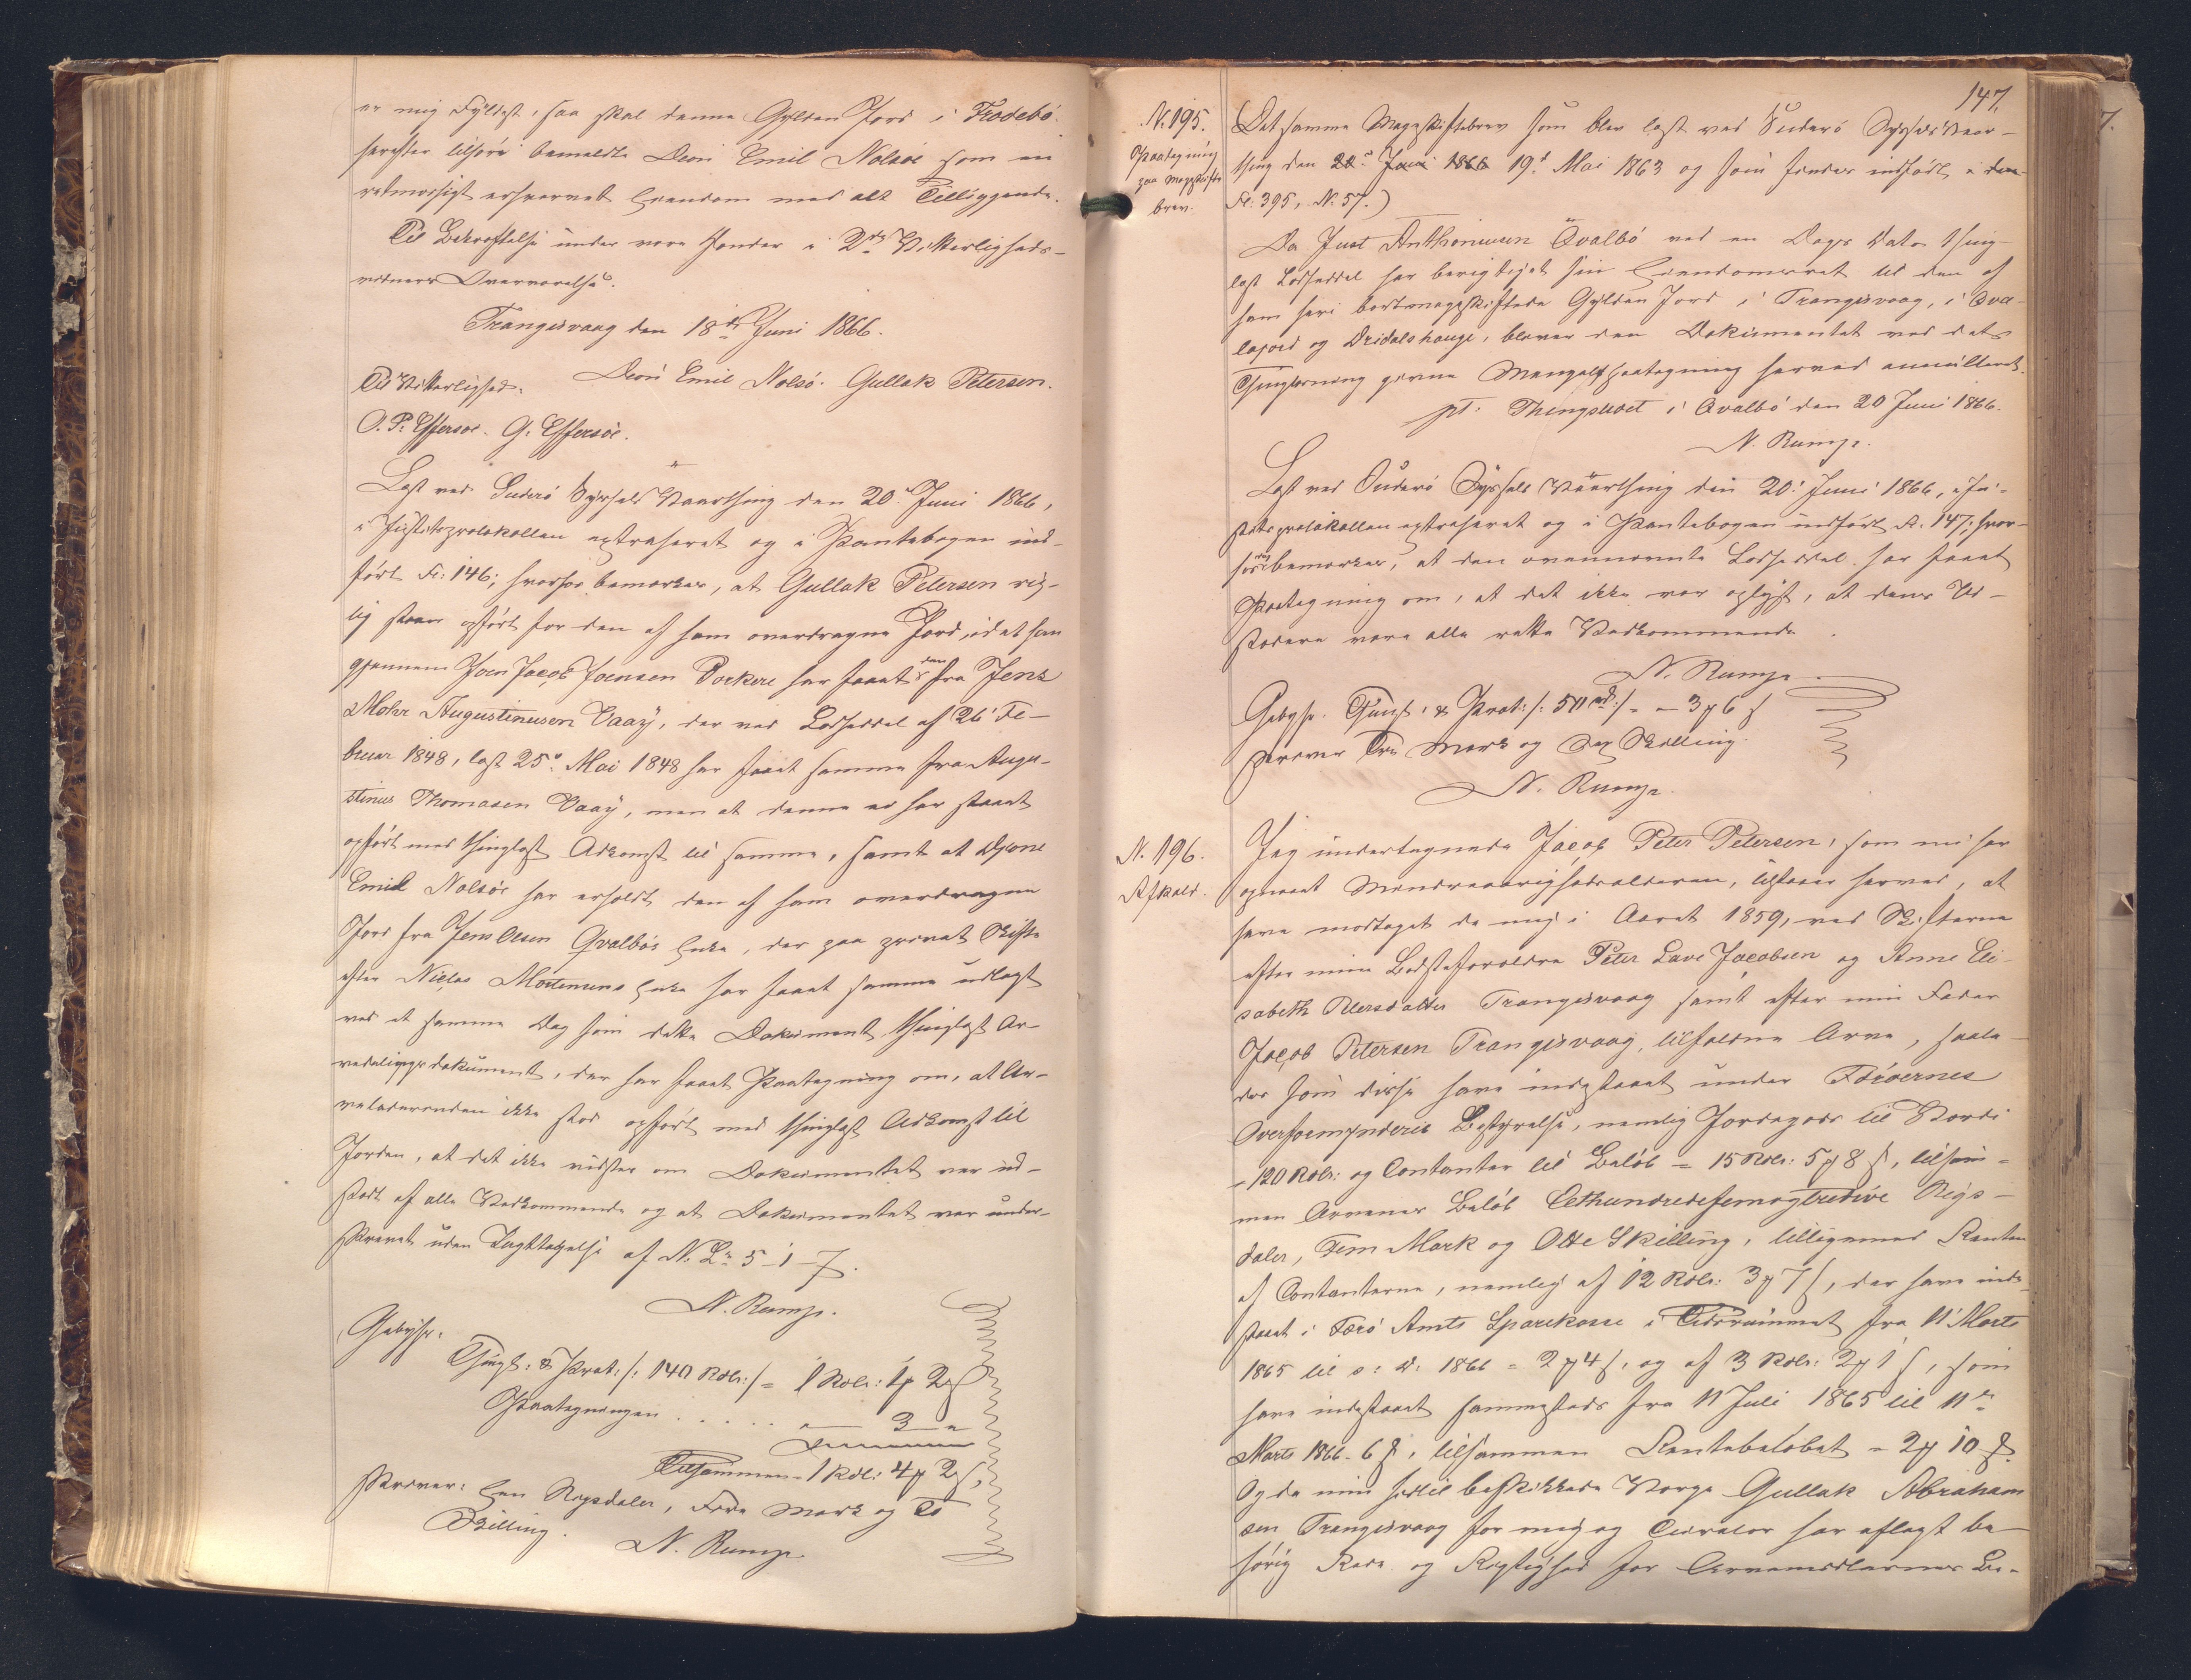 er mig fyldest, saa skal denne Gylden Jord i Frodebö
herefter tilhöre bemeldte Dion Emil Nolsöe som en
retmæssigt erhvervet Eiendom med alt Tilliggende.
Til Bekræftelse under vore Hænder i 2de Vitterligheds-
vidners Overværelse.
Trangisvaag den 18de Juni 1866.
Dion Emil Nolsö. Gullak Petersen.
Til Vitterlighed:
O. P. Effersøe. G. Effersöe.
Læst ved Suderö Syssels Vaarthing den 20de Juni 1866,
i Justitsprotokollen extraheret og i Pantebogen ind-
ført Fo: 146; hvorfor bemærkes, at Gullak Petersen rig-
tig staar opført for den af ham overdragne Jord, idet han
gjennem Joen Jacob Joensen Porkere har faaet den fra Jens
Mohr Augustinusen Vaag, der ved Lodseddel af 26' Fe-
bruar 1848, læst 25de Mai 1848 har faaet samme fra Augu-
stinus Thomasen Vaag, men at denne ei har staaet
opført med thinglæst Adkomst til samme, samt at Djone
Emil Nolsöe har erholdt den af ham overdragne
Jord fra Jens Olsen Qvalbös Enke, der paa privat Skifte
efter Niclas Mortensens Enke har faaet samme udlagt
ved et samme Dag som dette Dokument thinglæst Ar-
vedelingsdokument, der har faaet Paategning om, at Ar-
veladerenden ikke stod opført med thinglæst Adkomst til
Jorden, at det ikke vidstes om Dokumentet var ud-
stedt af alle Vedkommende og at Dokumentet var under-
skrevet uden Iagttagelse af N. L. 5-1-7.
N. Rump.
Gebyhr:
Thingl: & Prot: /: 140 Rdlr: /: = 1 Rdlr: 1 ꝳ 2 ß
Paategningen . . . . . " 3 "
Tilsammen = 1 Rdl: 4 ꝳ 2 ß,
skriver: Een Rigsdaler, Fire Mark og To
Skilling. N. Rump
147.
N. 195.
Paategning
paa Mageskifte
brev.
(Det samme Mageskiftebrev som blev læst ved Suderö Syssels Vaar-
thing den 20de Juni 1866 19de Mai 1863 og som findes indført i den
Fo: 395, N: 57.)
Da Just Anthoniusen Qvalbö ved en Dags Dato thing-
læst Lodseddel har berigtiget sin Eiendomsret til den af
ham heri bortmageskiftede Gylden Jord i Trangisvaag, i Qva-
lajord og Dridalshauge, bliver den Dokumentet ved dets
Thinglæsning givne Mangelspaategning herved annulleret.
pt. Thingstedet i Qvalbö den 20 Juni 1866.
N. Rump.
Læst ved Suderö Syssels Vaarthing den 20' Juni 1866, i Ju-
stitsprotokollen extraheret og i Pantebogen indført Fo. 147; hvor-
hos bemærkes, at den ovennævnte Lodseddel har faaet
Paategning om, at det ikke var oplyst, at dens Ud-
stedere vare alle rette Vedkommende.
N. Rump
Gebyhr. Thingl: & Prot: /: 50 Rd: /: = " 3 ꝳ 6 ß
skriver Tre Mark og Sex Skilling.
N. Rump.
N. 196.
Afkald.
Jeg undertegnede Jacob Peter Petersen, som nu har
opnaaet Mindreaarighedsalderen, tilstaaer herved, at
have modtaget de mig i Aaret 1859, ved Skifterne
efter mine Bedsteforældre Peter Lave Jacobsen og Anne Eli-
sabeth Olersdatter Trangisvaag samt efter min Fader
Jacob Petersen Trangisvaag, tilfaldne Arve, saale-
des som disse have indestaaet under Færöernes
Overformynderies Bestyrelse, nemlig Jordegods til Værdi
- 120 Rdlr: og Contanter til Beløb = 15 Rdlr: 5 ꝳ 8 ß, tilsam-
men Arvenes Beløb Eethundredefemogtredive Rigs-
daler, Fem Mark og Otte Skilling, tilligemed Renten
af Contanterne, nemlig af 12 Rdlr: 3 ꝳ 7 ß, der have inde-
staaet i Færö Amts Sparekasse i Tidsrummet fra 11' Marts
1865 til s: D: 1866 = 2 ꝳ 4 ß, og af 3 Rdlr: 2 ꝳ 1 ß, som
have indestaaet sammesteds fra 11 Juli 1865 til 11te
Marts 1866 - 6 ß, tilsammen Rentebeløbet = 2 ꝳ 10 ß.
Og da min hidtil beskikkede Værge Gullak Abraham
sen Trangisvaag for mig og Curator har aflagt be-
hørig Rede og Rigtighed for Arvemidlernes Be-